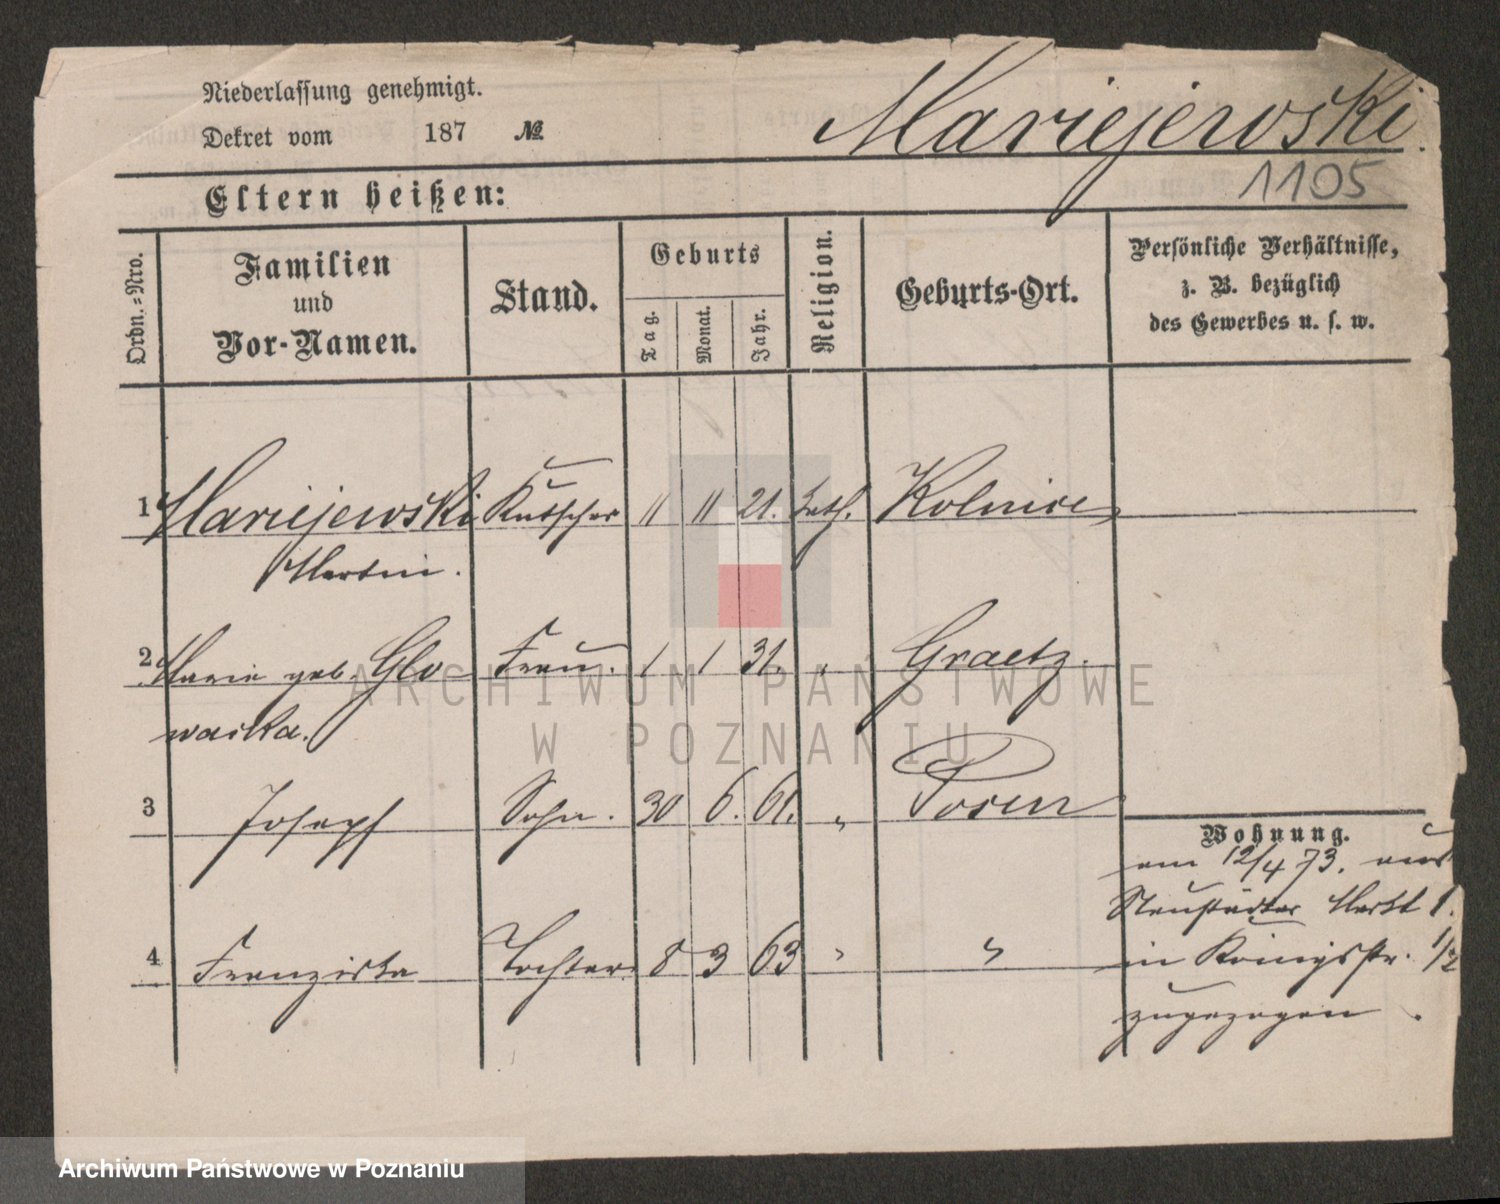 Niederlassung genehmigt.
Dekret vom 187 №
Mariejewski
1105
Eltern heißen:
Ordn.-Nro.
Familien
und
Vor-Namen.
Stand.
Geburts
Tag.
Monat.
Jahr.
Religion.
Geburts-Ort.
Persönliche Verhältnisse,
z. B. bezüglich
des Gewerbes u. s. w.
1 Mariejewski Kutscher 11 11 21. kath.
Martin.
2 Marie geb. Glo- Frau. 1 1 31. " Graetz.
wacka.
3 Joseph Sohn. 30 6. 61. " Posen
Wohnung.
am 12/4 73. aus
Neustädter Markt 1.
4 Franziska Tochter 8 3 63 " "
in Königsstr. 1/2
zugezogen.
ARCHIWUM PAŃSTWOWE
W POZNANIU
Archiwum Państwowe w Poznaniu